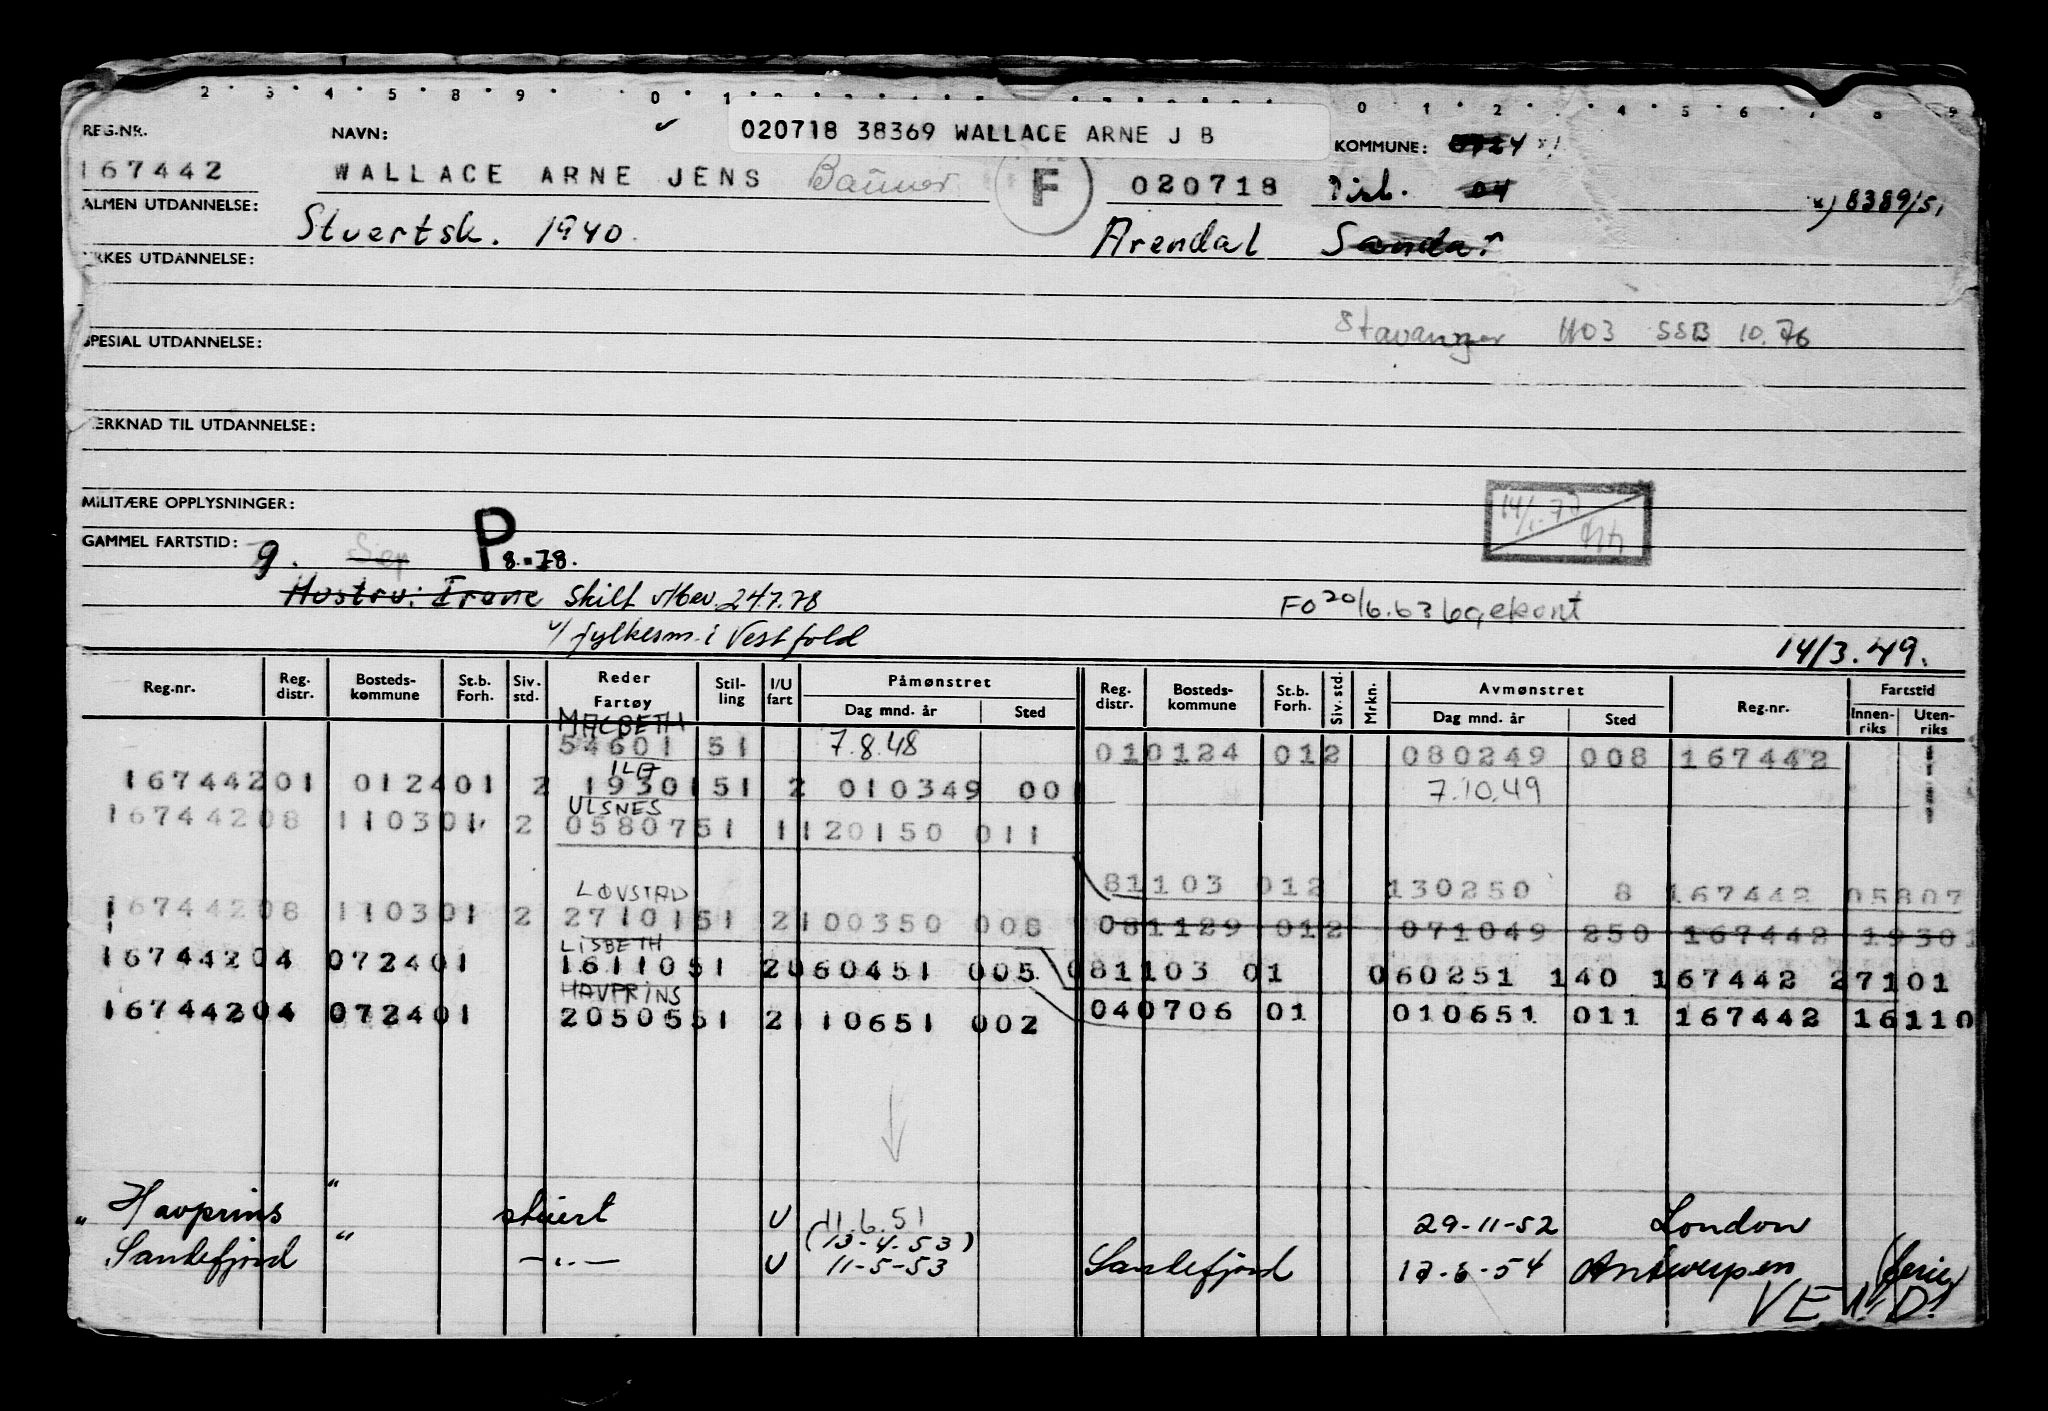 2 . 3 . 4 . 5 . 8 . 9 . . 0 . 1 . 0 . 1 . 2 . . 4 . 5 . 6 . 7 . 8 . 9
REG.NR. NAVN: 020718 38369 WALLACE ARNE J B KOMMUNE:
167442 WALLACE ARNE JENS F 020718
x) 8389/51
ALMEN UTDANNELSE: Stuertsk. 1940. Arendal Sandar
YRKES UTDANNELSE:
Stavanger 1103 SSB 10.76
SPESIAL UTDANNELSE:
MERKNAD TIL UTDANNELSE:
MILITÆRE OPPLYSNINGER:
GAMMEL FARTSTID: g. P 8.-78.
Hustru: Irene Skilt v/bev. 24.7.78
v/ fylkesm. i Vestfold
FO 20/6.63
14/3.49.
Reg.nr. Reg. distr. Bosteds- kommune St.b. Forh. Siv. std. Reder Fartøy Stil- ling I/U fart Påmønstret Dag mnd. år Sted Reg. distr. Bosteds- kommune St.b. Forh. Siv. std. Mrkn. Avmønstret Dag mnd. år Sted Reg.nr. Fartstid Innen- riks Uten- riks
MACBETH
54601 51 7.8.48 010124 012 080249 008 167442
16744201 012401 2 19301 51 2 010349 001 7.10.49
ULSNES
16744208 110301 2 05807 51 1 120150 011
81103 012 130250 8 167442 05807
LØVSTAD
16744208 110301 2 27101 51 2 100350 008 081129 012 071049 250 167442 19301
LISBETH
16744204 072401 16110 51 2 060451 005 081103 01 060251 140 167442 27101
HAVPRINS
16744204 072401 20505 51 2 110651 002 040706 01 010651 011 167442 16110
" Havprins " stuert U 11.6.51 29-11-52 London
(13-4-53)
Sandefjord " -"- U 11-5-53 Sandefjord 17-6-54 Antwerpen (ferie)
VEND!